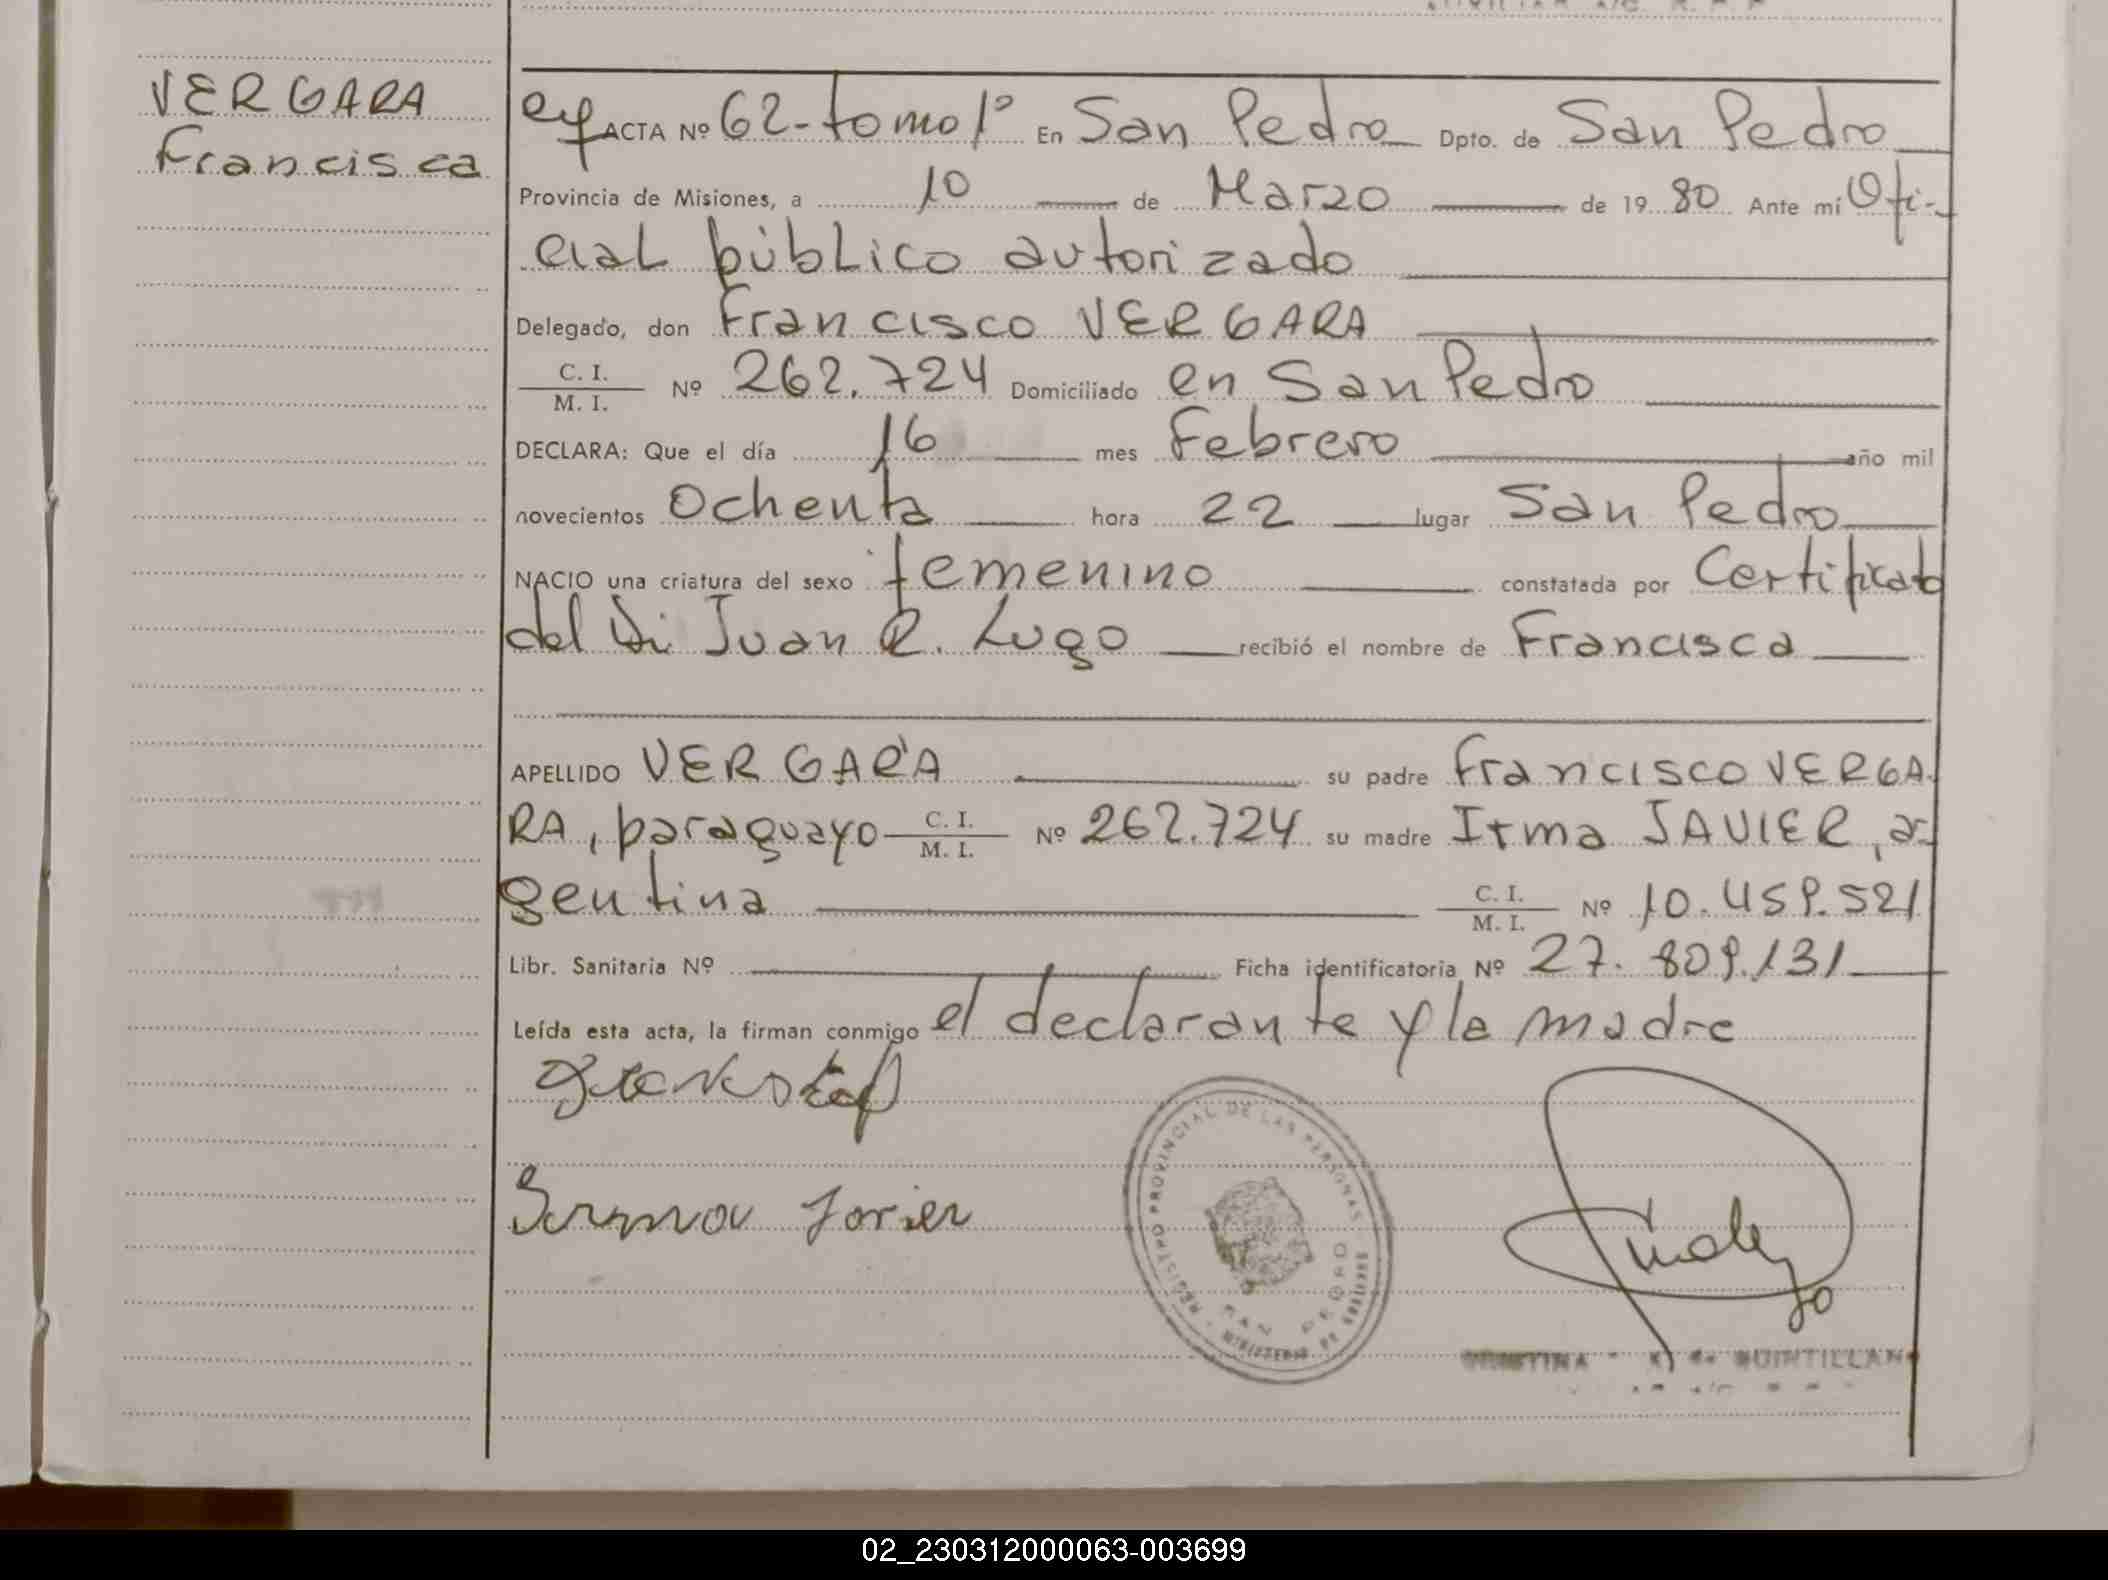 VERGARA
Francisca
ACTA Nº 62-tomo 1º En San Pedro Dpto. de San Pedro
Provincia de Misiones, a 10 de Marzo de 19 80 Ante mí Ofi-
cial público autorizado
Delegado, don Francisco VERGARA
C. I. / M. I. Nº 262.724 Domiciliado en San Pedro
DECLARA: Que el día 16 mes Febrero año mil
novecientos Ochenta hora 22 lugar San Pedro
NACIO una criatura del sexo femenino constatada por Certificado
del Dr Juan R. Lugo recibió el nombre de Francisca
APELLIDO VERGARA su padre Francisco VERGA-
RA, paraguayo C. I. / M. I. Nº 262.724 su madre Irma JAVIER, ar-
gentina C. I. / M. I. Nº 10.459.521
Libr. Sanitaria Nº Ficha identificatoria Nº 27.809.131
Leída esta acta, la firman conmigo el declarante y la madre
Irma Javier
REGISTRO PROVINCIAL DE LAS PERSONAS - MINISTERIO DE GOBIERNO
SAN PEDRO
CRISTINA K de QUINTILLAN
02_230312000063-003699